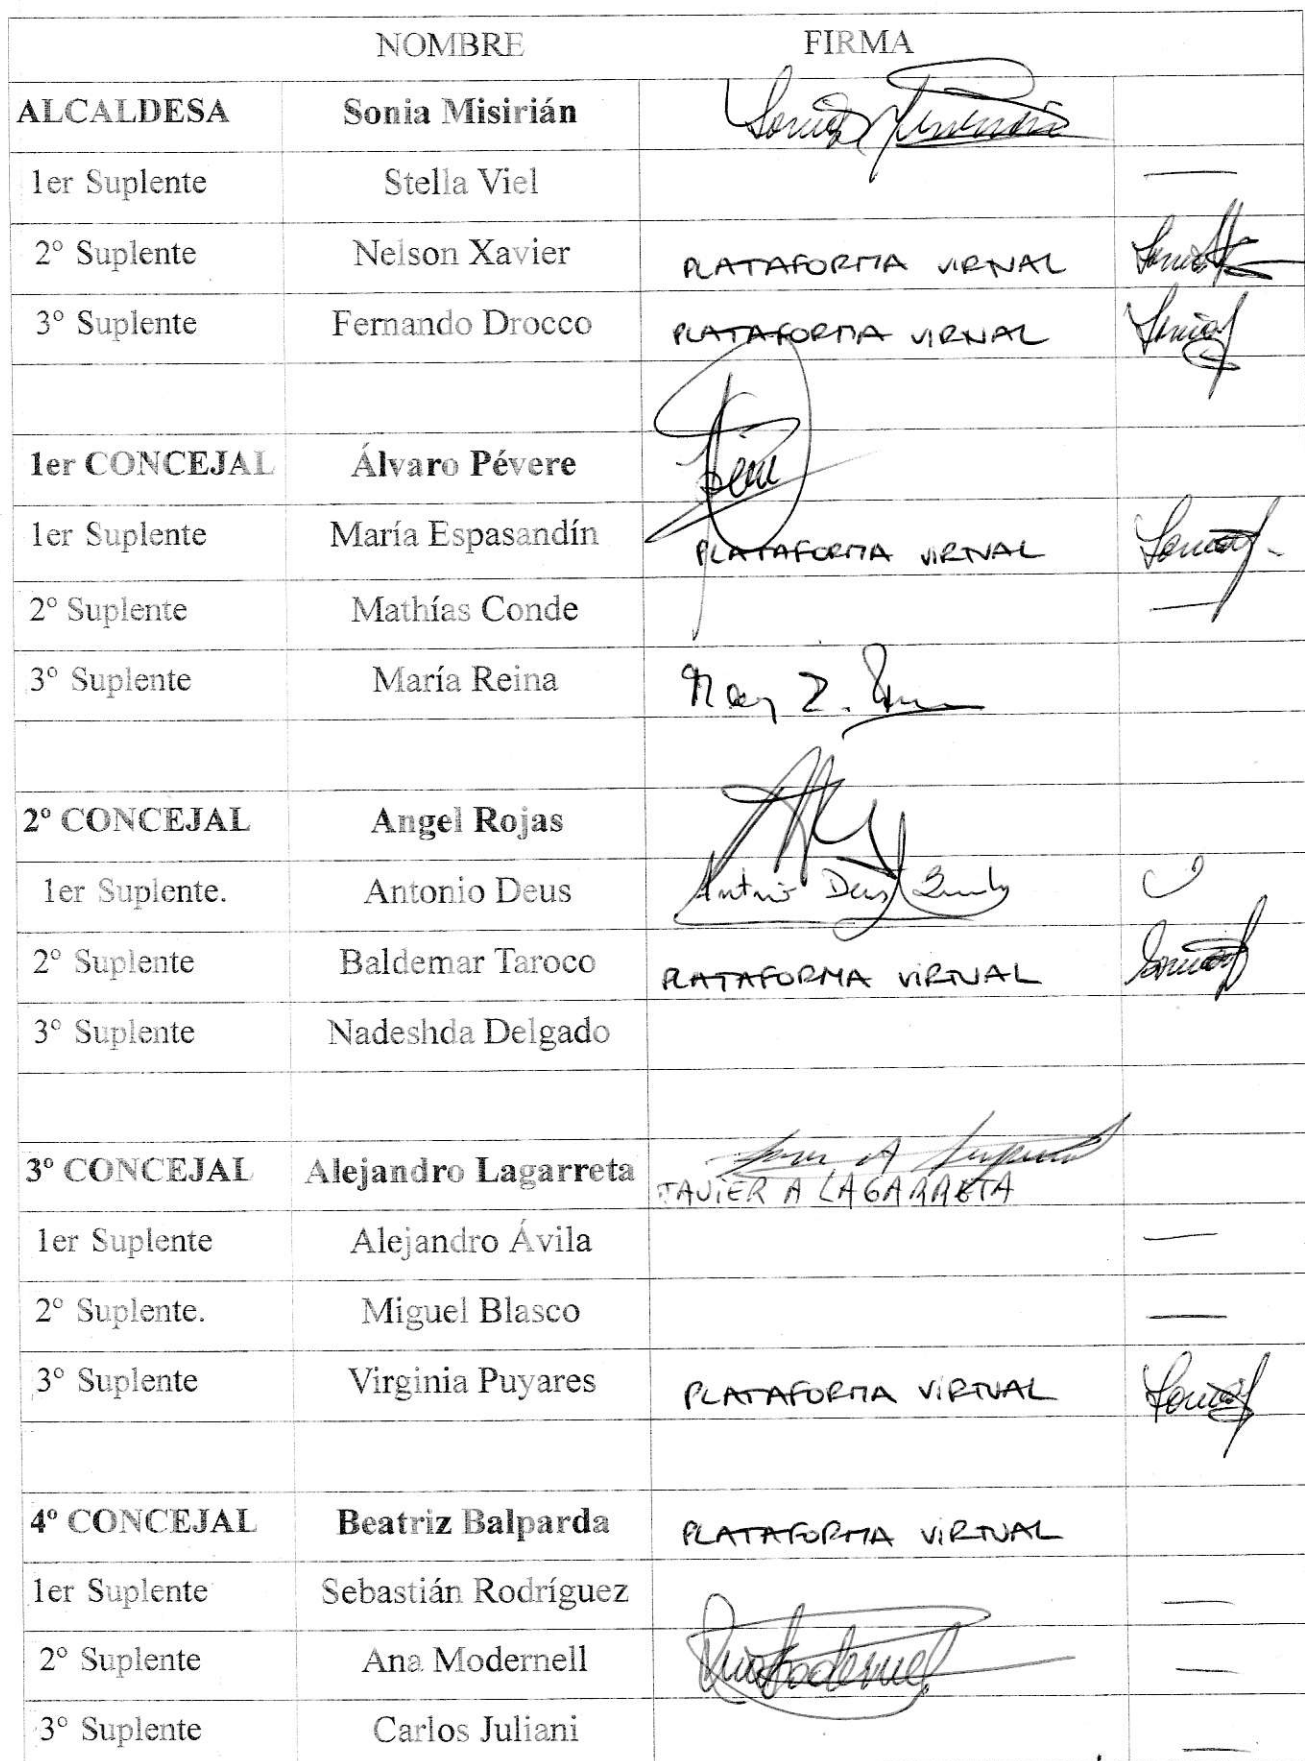 NOMBRE FIRMA
ALCALDESA Sonia Misirián
1er Suplente Stella Viel —
2° Suplente Nelson Xavier PLATAFORMA VIRTUAL
3° Suplente Fernando Drocco PLATAFORMA VIRTUAL
1er CONCEJAL Álvaro Pévere
1er Suplente María Espasandín PLATAFORMA VIRTUAL
2° Suplente Mathías Conde —
3° Suplente María Reina
2º CONCEJAL Angel Rojas
1er Suplente. Antonio Deus Antonio Deus
2° Suplente Baldemar Taroco PLATAFORMA VIRTUAL
3° Suplente Nadeshda Delgado
3º CONCEJAL Alejandro Lagarreta JAVIER A LAGARRETA
1er Suplente Alejandro Ávila —
2° Suplente. Miguel Blasco —
3° Suplente Virginia Puyares PLATAFORMA VIRTUAL
4º CONCEJAL Beatriz Balparda PLATAFORMA VIRTUAL
1er Suplente Sebastián Rodríguez —
2° Suplente Ana Modernell —
3° Suplente Carlos Juliani —